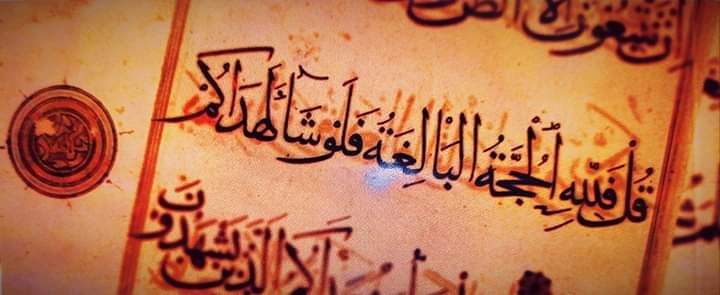 تَتَّبِعُونَ إِلَّا
قُلْ فَلِلَّهِ الْحُجَّةُ الْبَالِغَةُ فَلَوْ شَاءَ لَهَدَاكُمْ
الَّذِينَ يَشْهَدُونَ